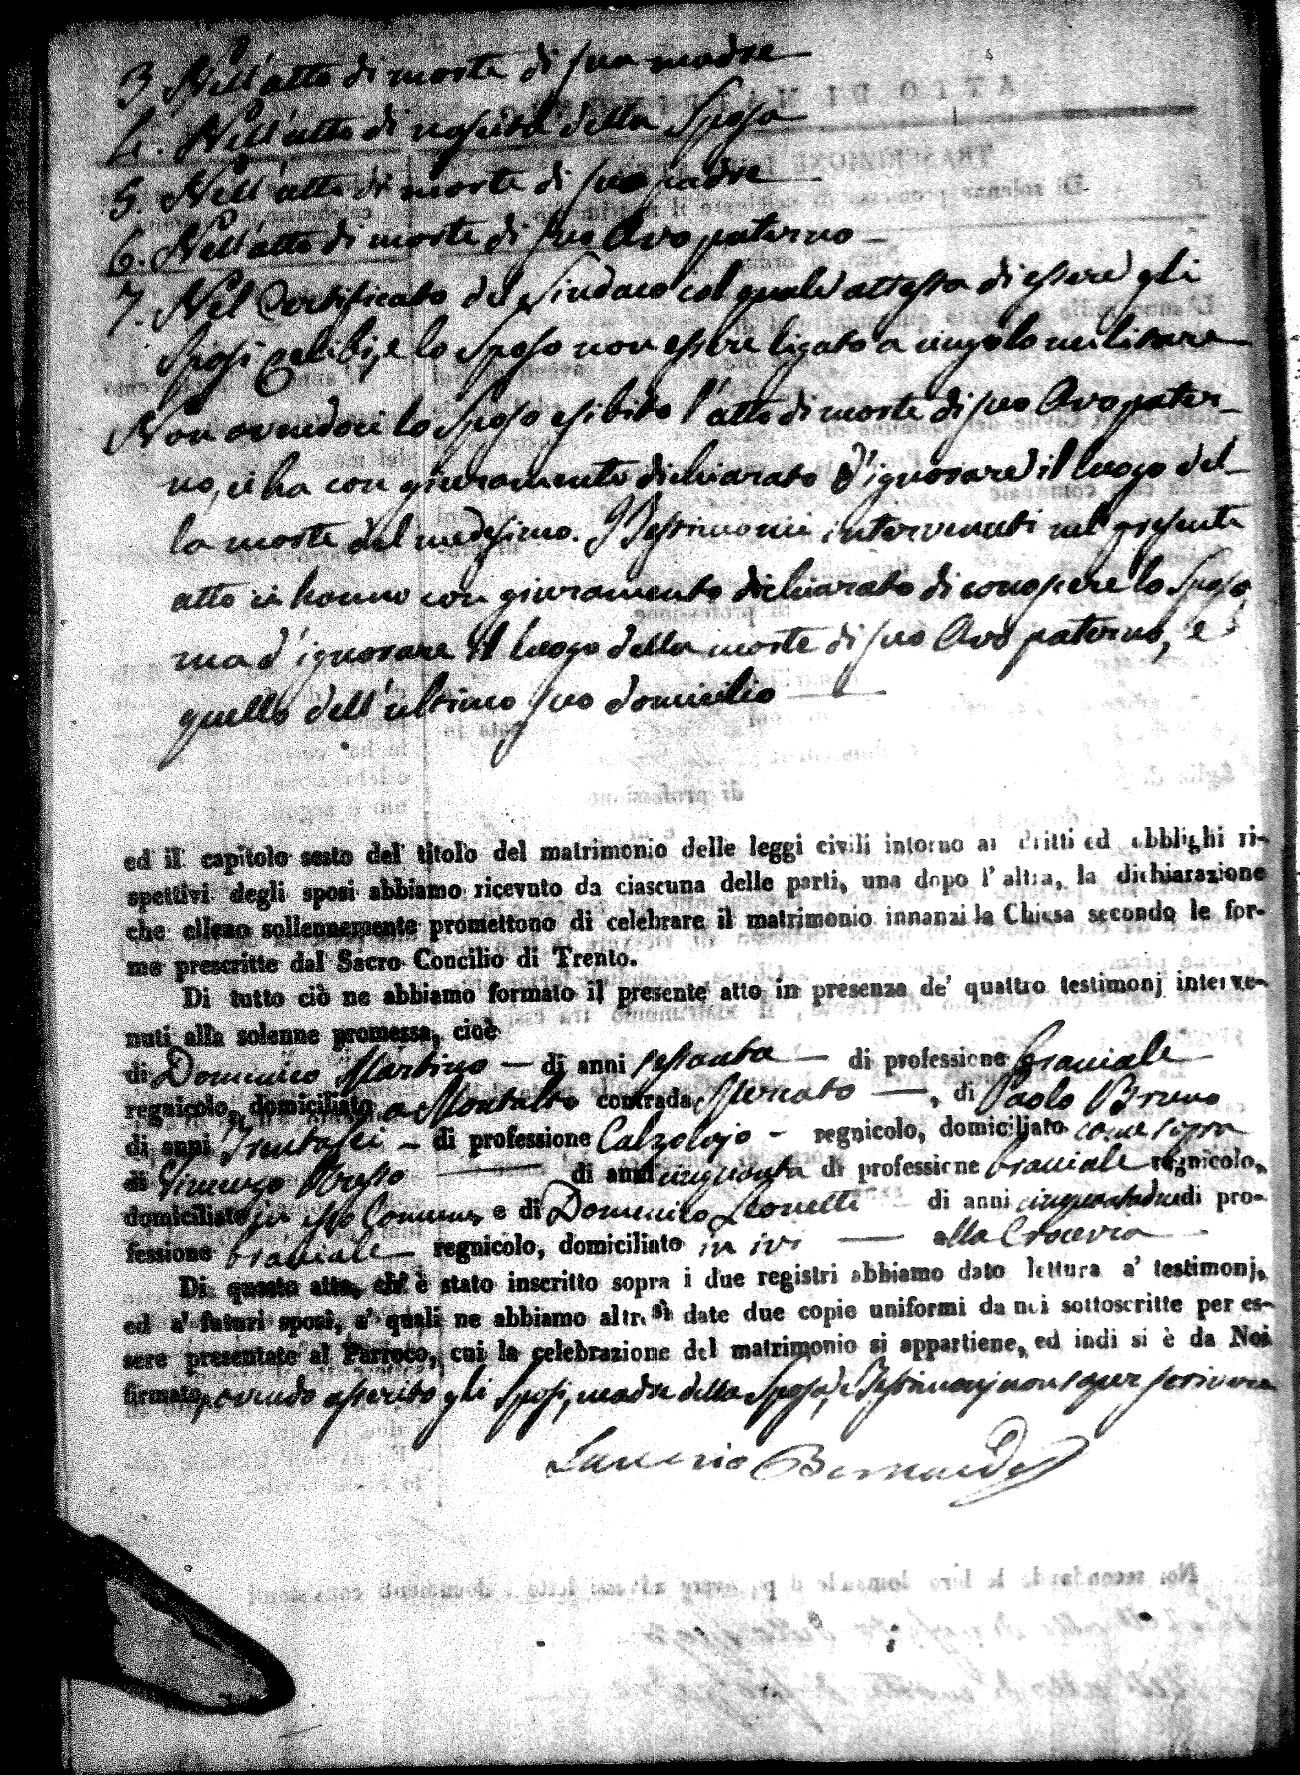 3. Nell'atto di morte di sua madre
4. Nell'atto di nascita della Sposa
5. Nell'atto di morte di suo padre
6. Nell'atto di morte di suo Avo paterno
7. Nel Certificato del Sindaco col quale attesta di essere gli
Sposi celibi, e lo Sposo non essere ligato a vingolo militare
Non avendoci lo Sposo esibito l'atto di morte di suo Avo pater-
no, ci ha con giuramento dichiarato d'ignorare il luogo del-
la morte del medesimo. I Testimonii intervenuti nel presente
atto ci hanno con giuramento dichiarato di conoscere lo Sposo,
ma d'ignorare il luogo della morte di suo Avo paterno, e
quello dell'ultimo suo domicilio
ed il capitolo sesto del titolo del matrimonio delle leggi civili intorno ai dritti ed obblighi ri-
spettivi degli sposi abbiamo ricevuto da ciascuna delle parti, una dopo l'altra, la dichiarazione
che elleno sollennemente promettono di celebrare il matrimonio innanzi la Chiesa secondo le for-
me prescritte dal Sacro Concilio di Trento.
Di tutto ciò ne abbiamo formato il presente atto in presenza de' quattro testimonj interve-
nuti alla solenne promessa, cioè
di Domenico Martino — di anni sessanta — di professione braciale
regnicolo, domiciliato a Montalto contrada Mercato —, di Paolo Bruno
di anni Trentasei — di professione Calzolajo — regnicolo, domiciliato come sopra
di Vincenzo Russo — di anni cinquanta di professione braciale regnicolo,
domiciliato in esso Comune, e di Domenico Leonetti — di anni cinquantadue di pro-
fessione braciale regnicolo, domiciliato in ivi — alla Crocevia
Di questo atto, ch' è stato inscritto sopra i due registri abbiamo dato lettura a' testimonj,
ed a' futuri sposi, a' quali ne abbiamo altresì date due copie uniformi da noi sottoscritte per es-
sere presentate al Parroco, cui la celebrazione del matrimonio si appartiene, ed indi si è da Noi
firmato, avendo asserito gli Sposi, madre della Sposa, e Testimonj non saper scrivere
Bernardo